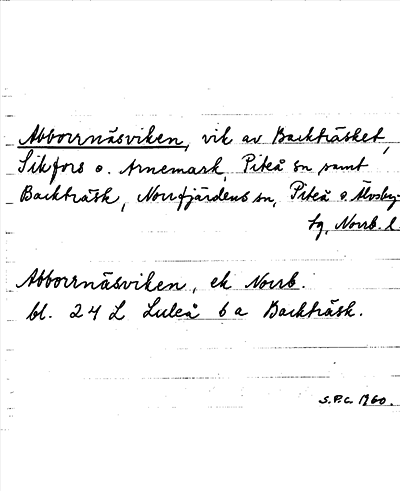 Abborrnäsviken, vik av Backträsket,
Sikfors o. Arnemark, Piteå sn samt
Backträsk, Norrfjärdens sn, Piteå o. Älvsby-
tg, Norrb. l.
Abborrnäsviken, ek Norrb.
bl. 24 L Luleå 6 a Backträsk.
S.P.C. 1960.